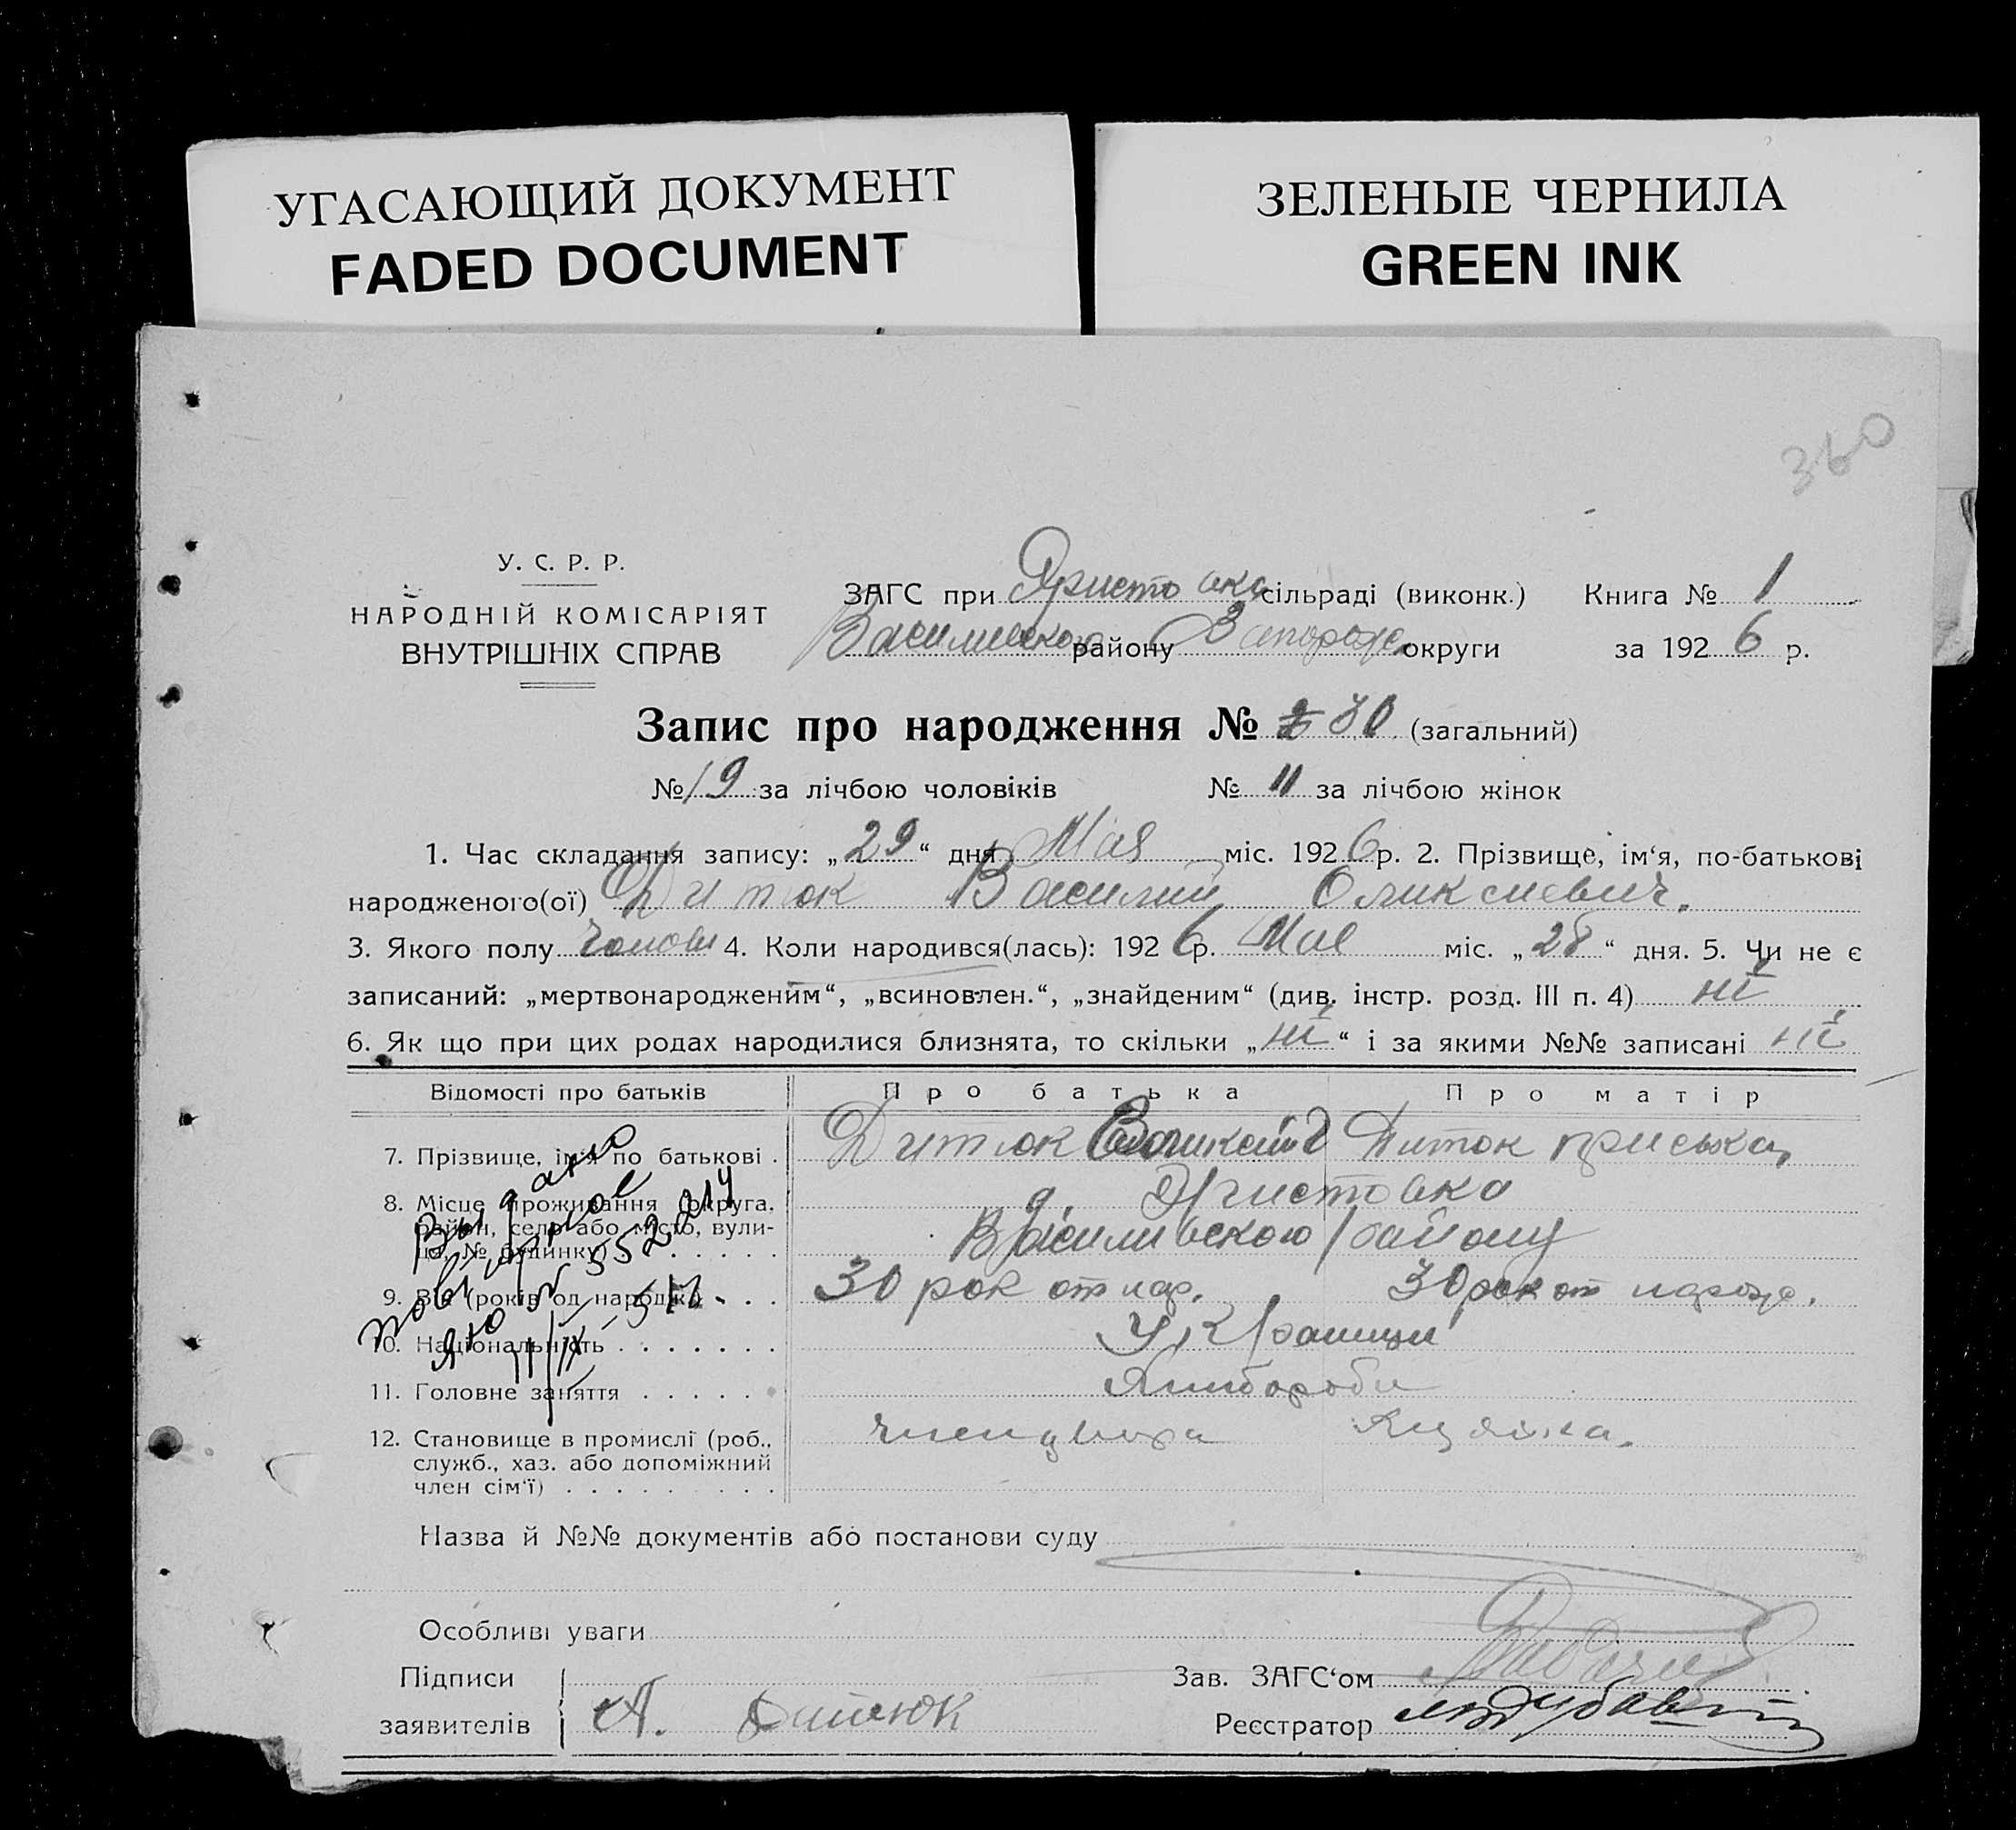 УГАСАЮЩИЙ ДОКУМЕНТ
FADED DOCUMENT
ЗЕЛЕНЫЕ ЧЕРНИЛА
GREEN INK
360
У. С. Р. Р.
НАРОДНІЙ КОМІСАРІЯТ
ВНУТРІШНІХ СПРАВ
ЗАГС при сільраді (виконк.) Книга № 1
району округи за 1926 р.
Запис про народження № 30 (загальний)
№ 19 за лічбою чоловіків № 11 за лічбою жінок
1. Час складання запису: „29“ дня Мая міс. 1926 р. 2. Прізвище, ім‘я, по-батькові
народженого(ої) Дитюк Василий Оликсиевич.
3. Якого полу 4. Коли народився(лась): 1926 р. Мае міс. „28“ дня. 5. Чи не є
записаний: „мертвонародженим“, „всиновлен.“, „знайденим“ (див. інстр. розд. III п. 4) ні
6. Як що при цих родах народилися близнята, то скільки „ні“ і за якими №№ записані ні
Відомості про батьків Про батька Про матір
7. Прізвище, ім‘я по батькові . Дитюк Дитюк приська
8. Місце проживання (округа, район, село або місто, вулиця, № будинку)
району
9. Вік (років од народж.) 30 рок от нар. 30 рок от народ.
10. Національність Україньці
11. Головне заняття
12. Становище в промислі (роб.,
служб., хаз. або допоміжний
член сім‘ї)
Выдано
повторное
ЯЮ № 552214
11/IX-51 г.
Назва й №№ документів або постанови суду
Особливі уваги
Підписи
заявителів А. Дитюк
Зав. ЗАГС‘ом
Реєстратор